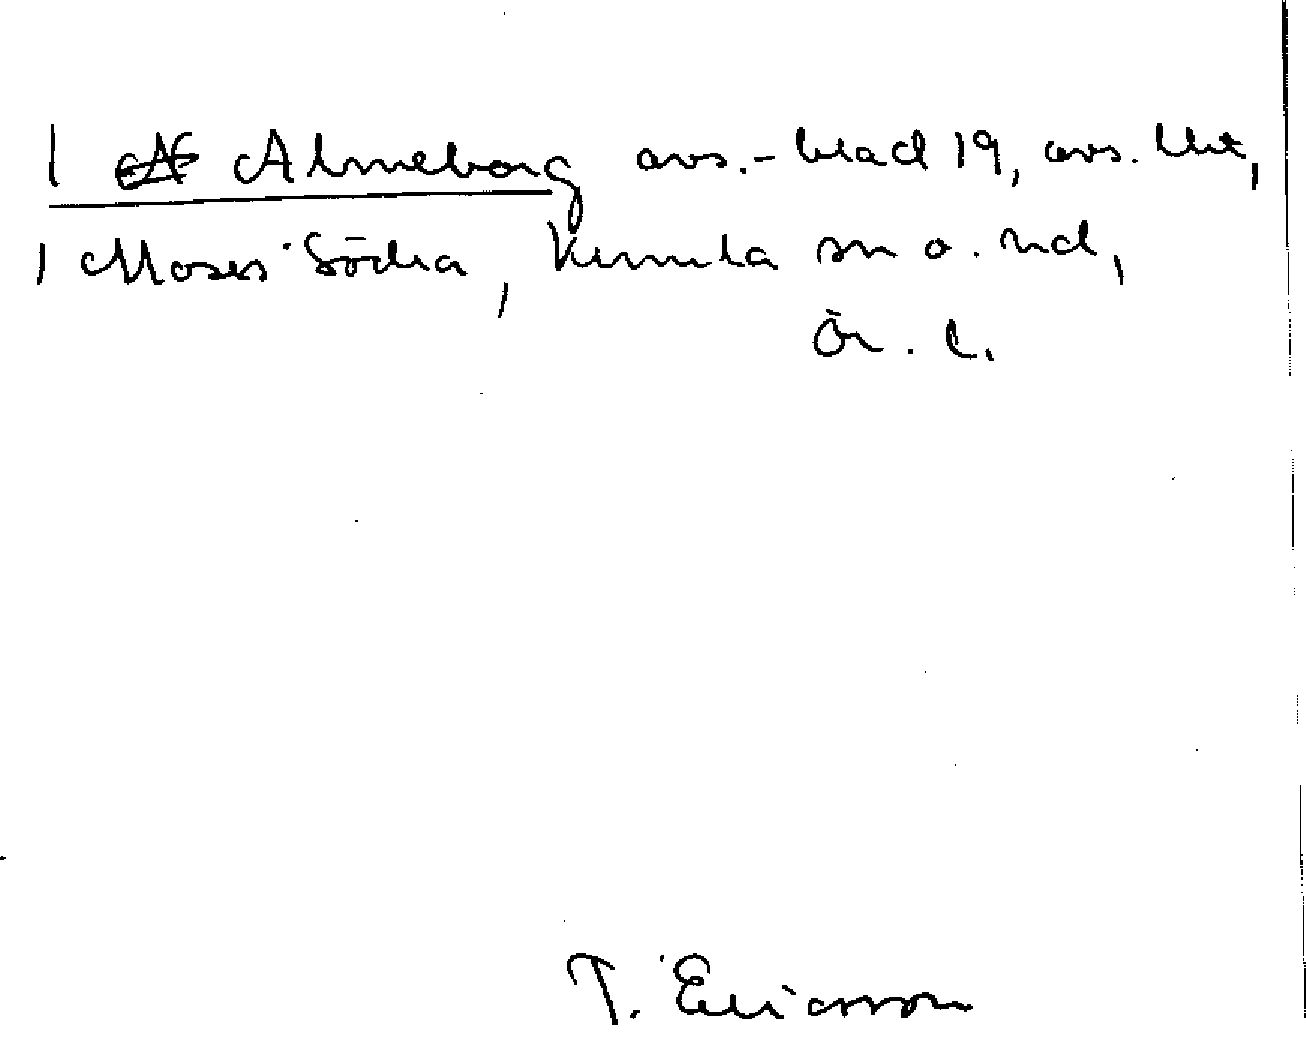 | Almeborg avs.-blad 19, avs. lht,
| Moses Södra, Kumla sn o. hd,
Ör. l.
T. Ericsson